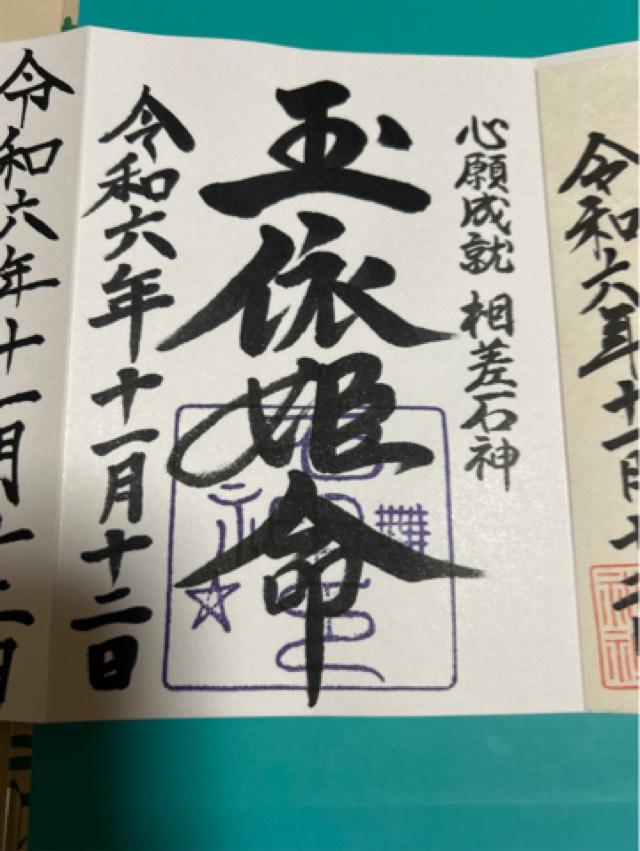 令和六年十一月十二日
心願成就 相差石神
玉依姫命
令和六年十一月十二日
令和六年十一月十二日